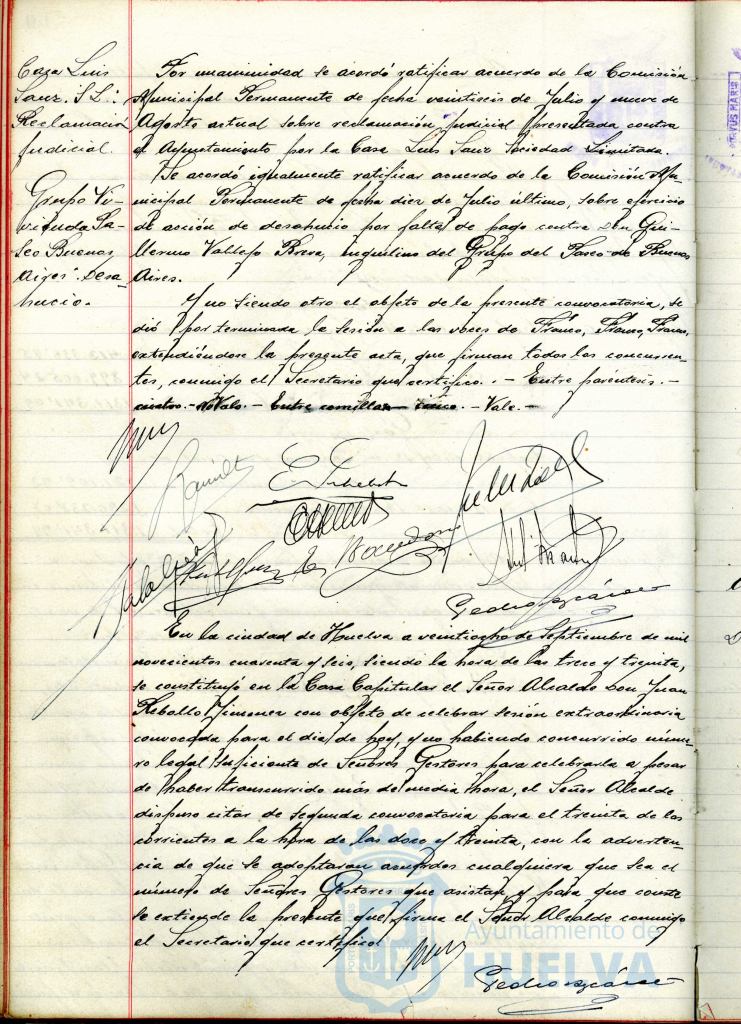 Casa Luis
Sanz. S.L.:
Reclamación
judicial.
Por unanimidad se acordó ratificar acuerdo de la Comisión
Municipal Permanente de fecha veintiseis de Julio y nueve de
Agosto actual sobre reclamación judicial presentada contra
el Ayuntamiento por la Casa Luis Sanz Sociedad Limitada.
Grupo Vi-
vienda Pa-
seo Buenos
Aires. Desa-
hucio.-
Se acordó igualmente ratificar acuerdo de la Comisión Mu-
nicipal Permanente de fecha diez de Julio último, sobre ejercicio
de acción de desahucio por falta de pago contra Don Gui-
llermo Vallejo Brera, inquilino del Grupo del Paseo de Buenos
Aires.
Y no siendo otro el objeto de la presente convocatoria, se
dió por terminada la sesión a las voces de Franco, Franco, Franco,
extendiéndose la presente acta, que firman todos los concurren-
tes, conmigo el Secretario que certifico.:- Entre paréntesis.-
cuatro.-No Vale.- Entre comillas- cinco.- Vale.-
En la ciudad de Huelva a veintiocho de Septiembre de mil
novecientos cuarenta y seis, siendo la hora de las trece y treinta,
se constituyó en la Casa Capitular el Señor Alcalde Don Juan
Rebollo Jimenez con objeto de celebrar sesión extraordinaria
convocada para el dia de hoy, y no habiendo concurrido núme-
ro legal suficiente de Señores Gestores para celebrarla a pesar
de haber transcurrido más de media hora, el Señor Alcalde
dispuso citar de segunda convocatoria para el treinta de los
corrientes a la hora de las doce y treinta, con la adverten-
cia de que se adoptaran acuerdos cualquiera que sea el
número de Señores Gestores que asistan, y para que conste
se extiende la presente que firma el Señor Alcalde conmigo
el Secretario que certifico.
Ayuntamiento de
HUELVA